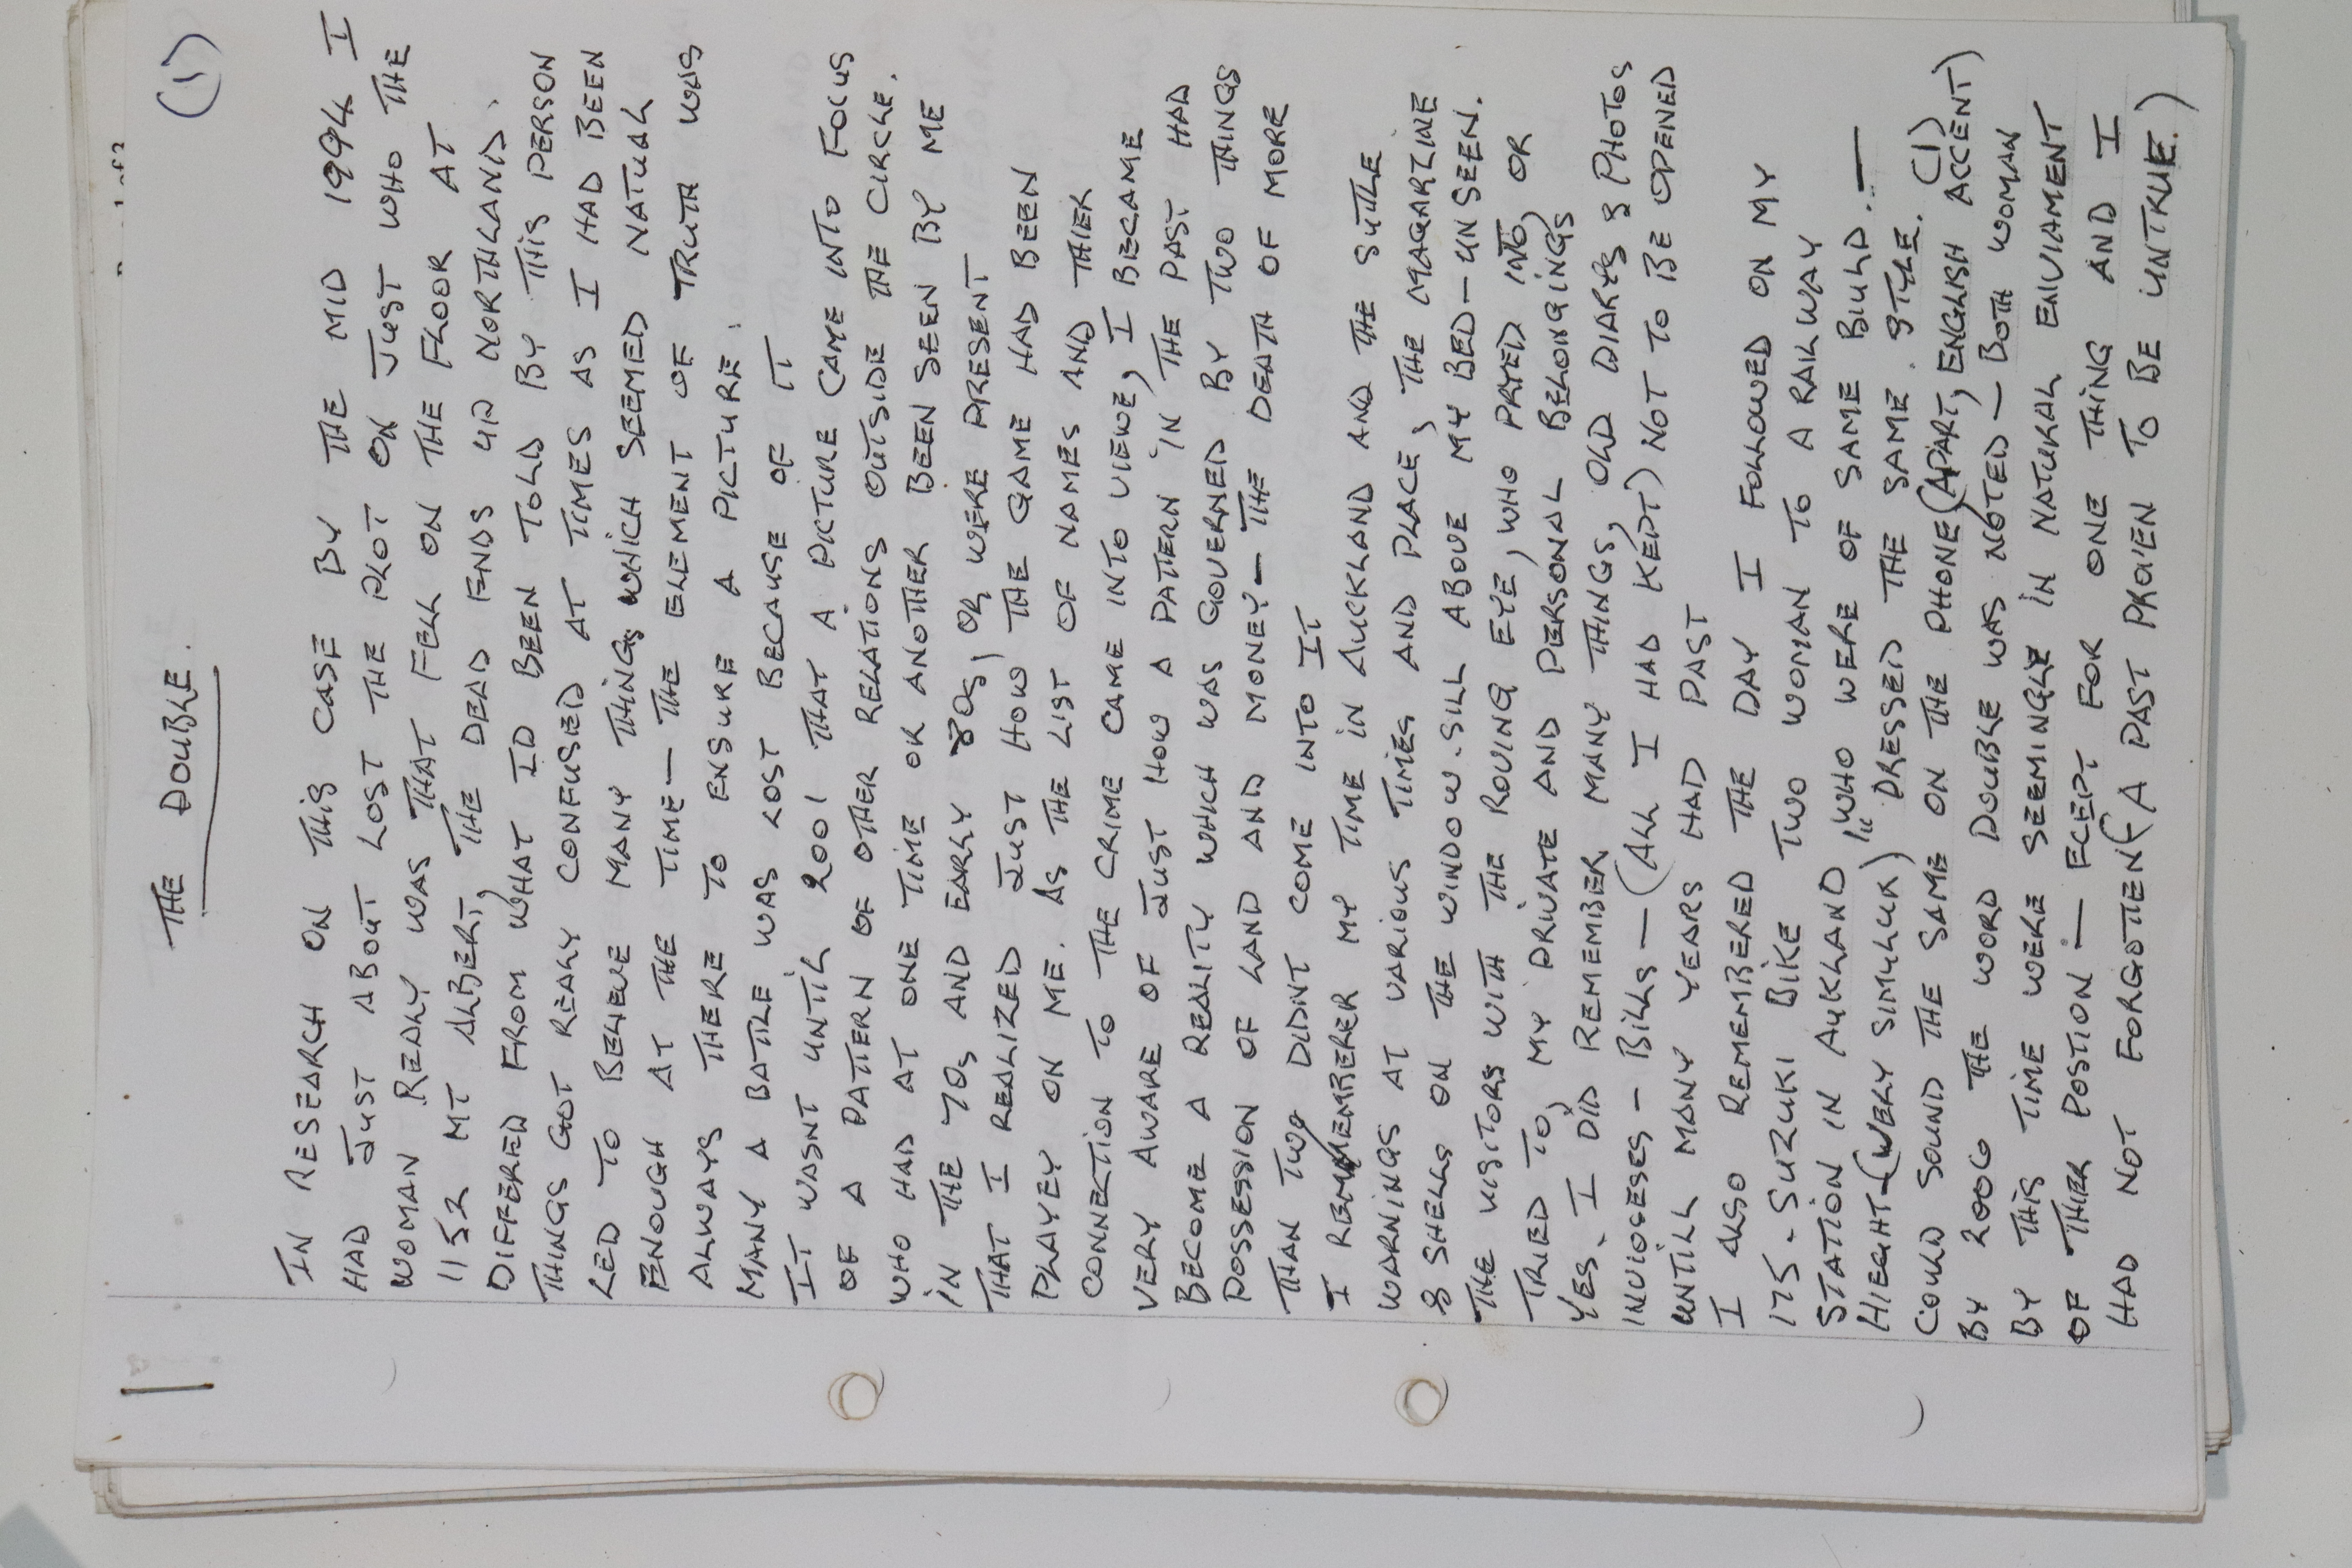 (1)
THE DOUBLE.
IN RESEARCH ON THIS CASE BY THE MID 1994 I
HAD JUST ABOUT LOST THE PLOT ON JUST WHO THE
WOMAN REALY WAS THAT FELL ON THE FLOOR AT
1152 MT ALBERT, THE DEAD ENDS UP NORTHLAND.
DIFFERED FROM WHAT ID BEEN TOLD BY THIS PERSON
THINGS GOT REALY CONFUSED AT TIMES AS I HAD BEEN
LED TO BELIEVE MANY THINGS WHICH SEEMED NATUAL
ENOUGH AT THE TIME — THE ELEMENT OF TRUTH WAS
ALWAYS THERE TO ENSURE A PICTURE.
MANY A BATTLE WAS LOST BECAUSE OF IT
IT WASNT UNTIL 2001 THAT A PICTURE CAME INTO FOCUS
OF A PATTERN OF OTHER RELATIONS OUTSIDE THE CIRCLE.
WHO HAD AT ONE TIME OR ANOTHER BEEN SEEN BY ME
IN THE 70s AND EARLY 80s, OR WERE PRESENT
THAT I REALIZED JUST HOW THE GAME HAD BEEN
PLAYED ON ME. AS THE LIST OF NAMES AND THIER
CONNECTION TO THE CRIME CAME INTO VIEWE, I BECAME
VERY AWARE OF JUST HOW A PATTERN IN THE PAST HAD
BECOME A REALITY WHICH WAS GOVERNED BY TWO THINGS
POSSESSION OF LAND AND MONEY — THE DEATH OF MORE
THAN TWO DIDNT COME INTO IT
I REMEMBERER MY TIME IN AUCKLAND AND THE SUTLE
WARNINGS AT VARIOUS TIMES AND PLACE, THE MAGARZINE
& SHELLS ON THE WINDOW.SILL ABOVE MY BED — UNSEEN.
THE VISITORS WITH THE ROVING EYE, WHO PRYED INTO, OR
TRIED TO, MY PRIVATE AND PERSONAL BELONGINGS
YES. I DID REMEMBER MANY THINGS, OLD DIARYS & PHOTOS
INVIOSES - BILLS — (ALL I HAD KEPT) NOT TO BE OPENED
UNTILL MANY YEARS HAD PAST
I ALSO REMEMBERED THE DAY I FOLLOWED ON MY
175 - SUZUKI BIKE TWO WOMAN TO A RAILWAY
STATION IN AUKLAND "WHO WERE OF SAME BUILD. —
HIEGHT - (VERY SIMULUR) " DRESSED THE SAME STYLE. (1)
COULD SOUND THE SAME ON THE PHONE (APART, ENGLISH ACCENT)
BY 2006 THE WORD DOUBLE WAS NOTED — BOTH WOMAN
BY THIS TIME WERE SEEMINGLY IN NATURAL ENVIAMENT
OF THIER POSTION — ECEPT FOR ONE THING AND I
HAD NOT FORGOTTEN (A PAST PROVEN TO BE UNTRUE.)